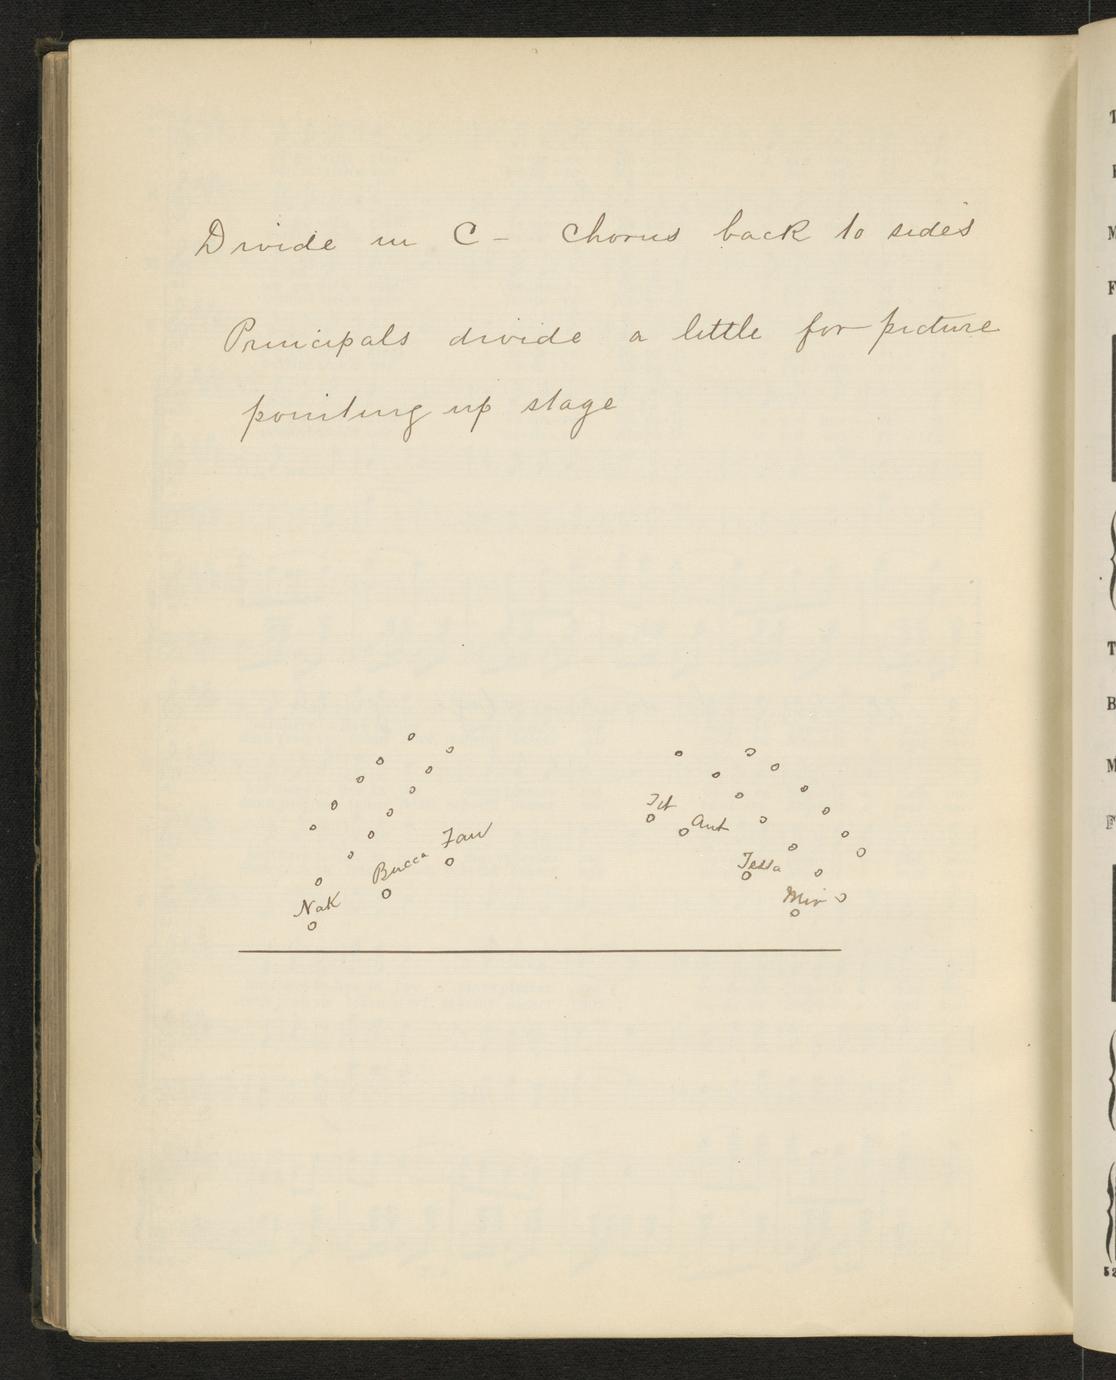 Divide in C - Chorus back to sides
Principals divide a little for picture
pointing up stage
Tit
Ant
Faw
Bucca
Tessa
Nak
Mir